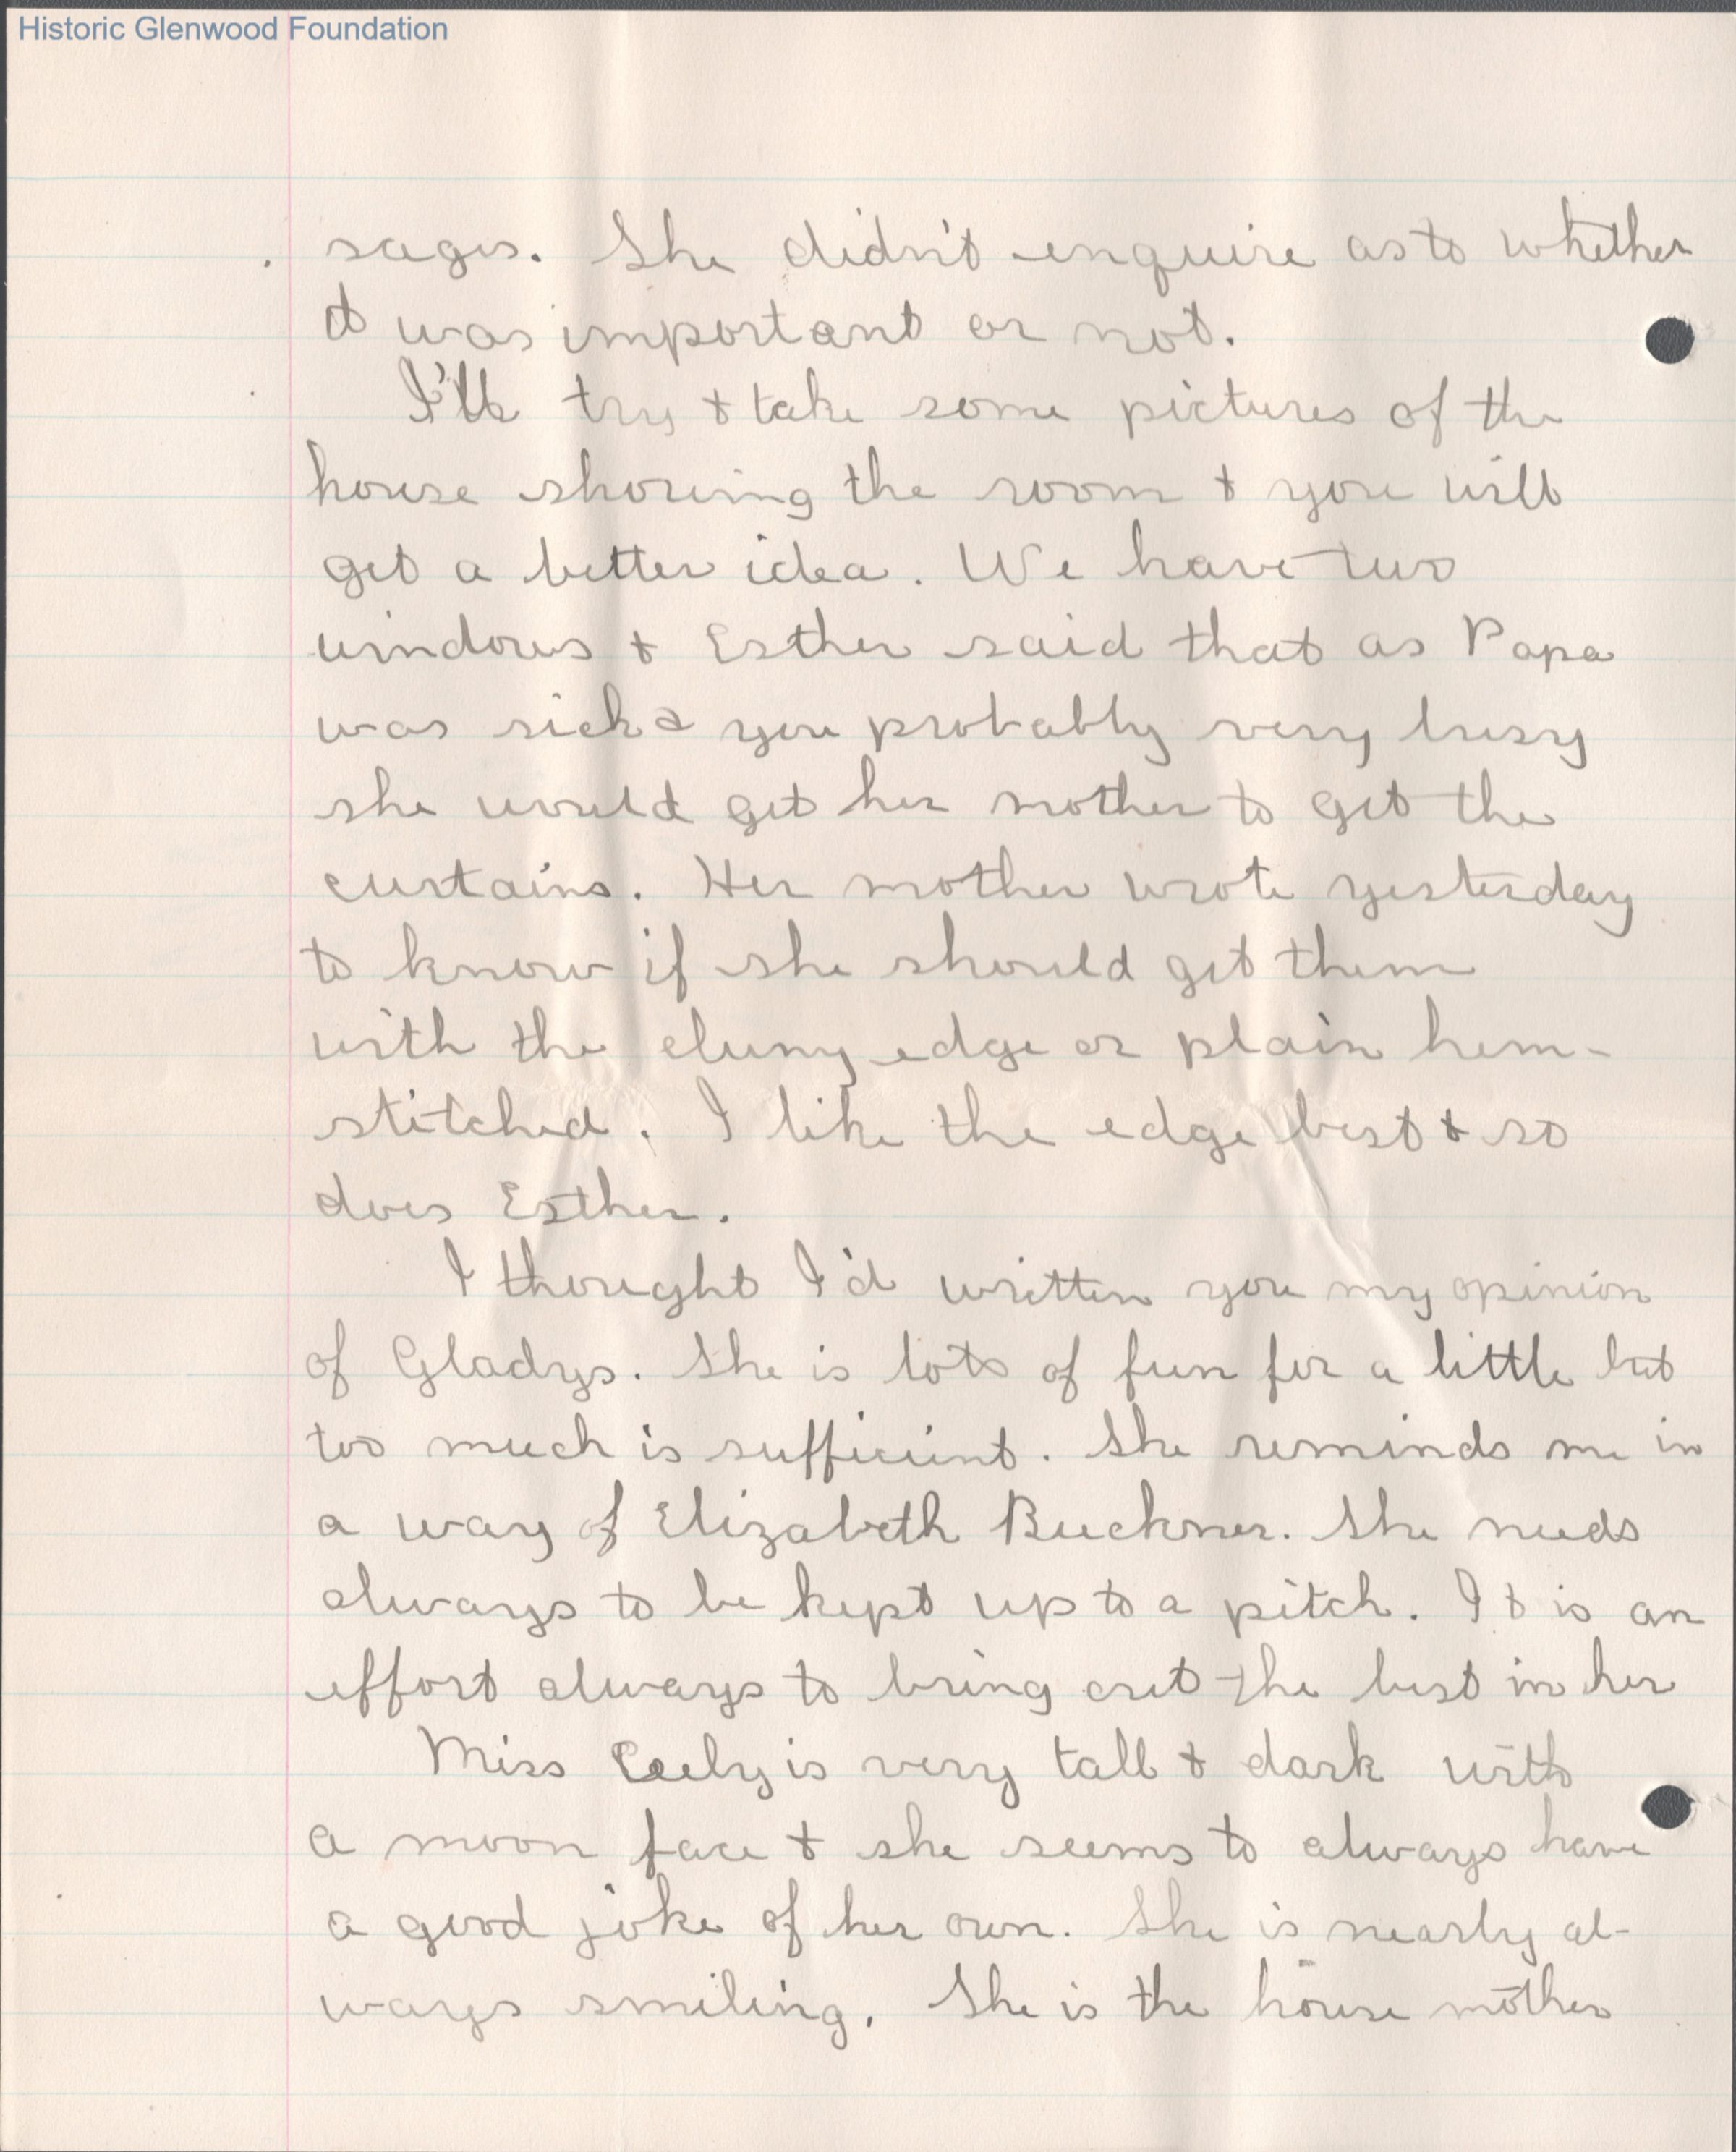 Historic Glenwood Foundation
sages. She didn't enquire as to whether
it was important or not.
I'll try & take some pictures of the
house showing the room & you will
get a better idea. We have two
windows & Esther said that as Papa
was sick & you probably very busy
she would get her mother to get the
curtains. Her mother wrote yesterday
to know if she should get them
with the cluny edge or plain hem-
stitched. I like the edge best & so
does Esther.
I thought I'd written you my opinion
of Gladys. She is lots of fun for a little but
too much is sufficient. She reminds me in
a way of Elizabeth Buckner. She needs
always to be kept up to a pitch. It is an
effort always to bring out the best in her
Miss is very tall & dark with
a moon face & she seems to always have
a good joke of her own. She is nearly al-
ways smiling. She is the house mother